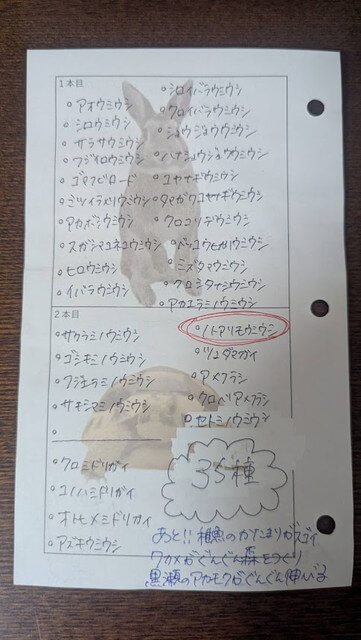 1本目
アオウミウシ
シロウミウシ
サラサウミウシ
フジイロウミウシ
ゴマフビロード
ミツイラメリウミウシ
アカボシウミウシ
スガシマコネコウミウシ
ヒロウミウシ
イバラウミウシ
シロイバラウミウシ
クロイバラウミウシ
ショウジョウウミウシ
ハナショウジョウウミウシ
コヤナギウミウシ
タマガワコヤナギウミウシ
クロコソデウミウシ
ベッコウヒカリウミウシ
ミズタマウミウシ
クロシタナシウミウシ
アカエラミノウミウシ
2本目
サクラミノウミウシ
ゴシキミノウミウシ
フジエラミノウミウシ
サキシマミノウミウシ
クロミドリガイ
コノハミドリガイ
オトヒメミドリガイ
アズキウミウシ
ノトアリモウミウシ
ツユダマガイ
アメフラシ
クロヘリアメフラシ
セトミノウミウシ
35種
あと!! 稚魚のかたまりがスゴイ
ワカメがぐんぐん森をつくり
黒瀬のアカモクがぐんぐん伸びる